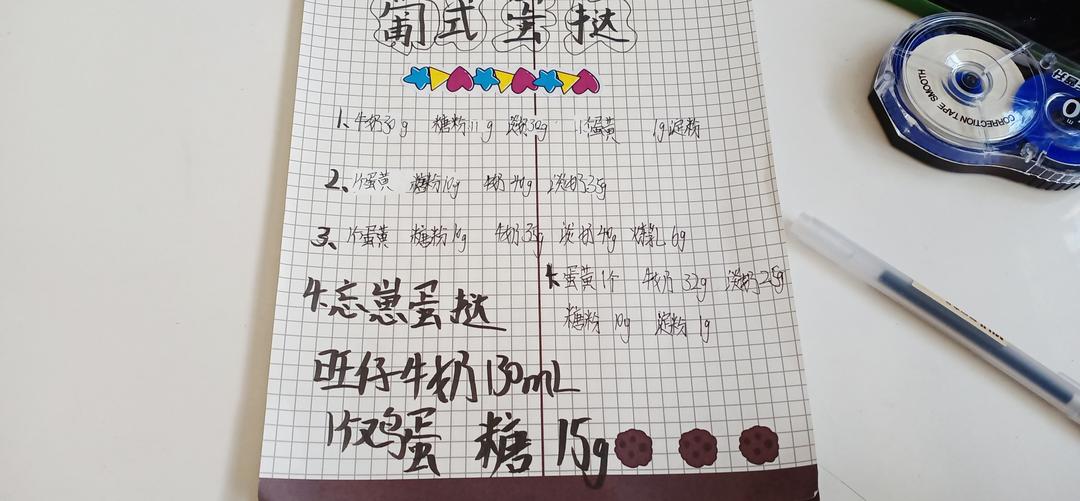 葡式蛋挞
1、牛奶30g 糖粉11g 淡奶30g 1个蛋黄 1g淀粉
2、1个蛋黄 糖粉10g 牛奶40g 淡奶35g
3、1个蛋黄 糖粉10g 牛奶35g 淡奶40g 炼乳6g
4、蛋黄1个 牛奶32g 淡奶25g
糖粉10g 淀粉1g
4、忘崽蛋挞
旺仔牛奶130mL
1个鸡蛋 糖15g
CORRECTION TAPE SMOOTH